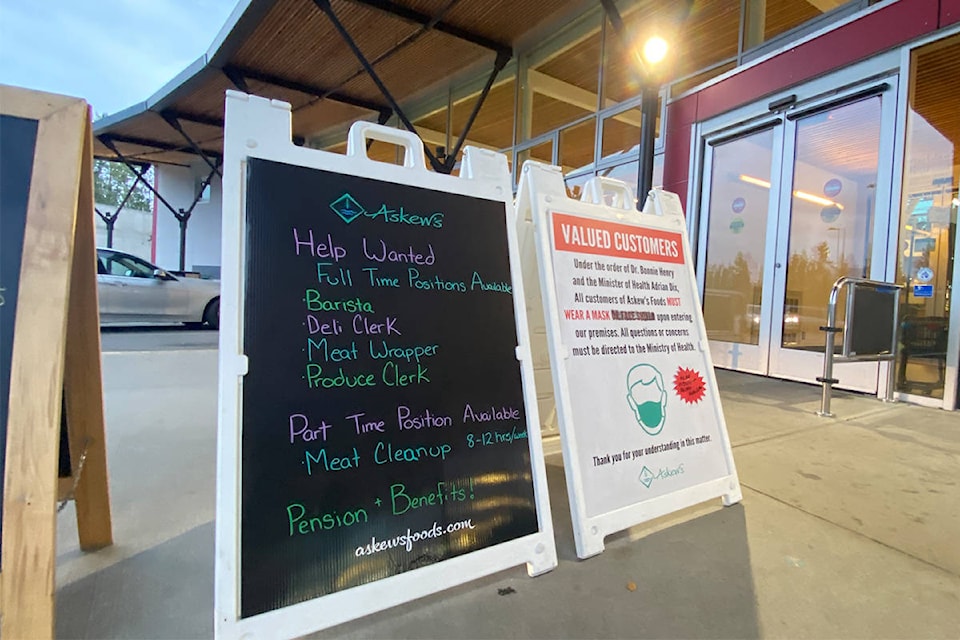 Askew's
Help Wanted
Full Time Positions Available
· Barista
· Deli Clerk
· Meat Wrapper
· Produce Clerk
Part Time Position Available
· Meat Cleanup 8-12 hrs/week
Pension + Benefits!
askewsfoods.com
VALUED CUSTOMERS
Under the order of Dr. Bonnie Henry
and the Minister of Health Adrian Dix,
All customers of Askew's Foods MUST
WEAR A MASK upon entering
our premises. All questions or concerns
must be directed to the Ministry of Health.
Thank you for your understanding in this matter.
Askew's